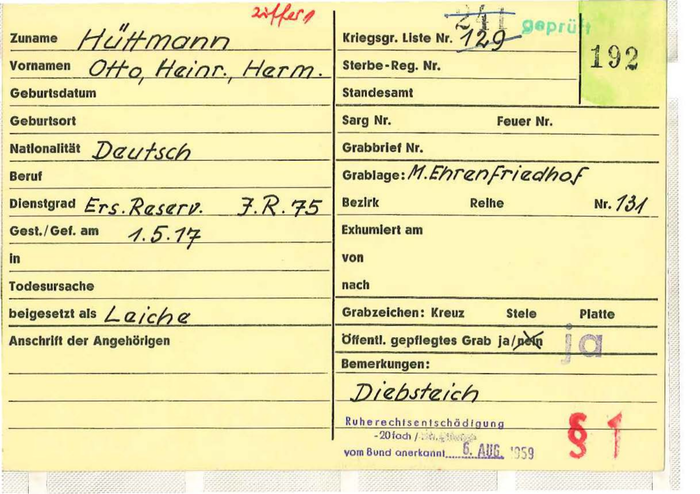 Ziffer 1
Zuname Hüttmann
Vornamen Otto, Heinr., Herm.
Geburtsdatum
Geburtsort
Nationalität Deutsch
Beruf
Dienstgrad Ers. Reserv. J.R. 75
Gest./Gef. am 1.5.17
in
Todesursache
beigesetzt als Leiche
Anschrift der Angehörigen
241 geprüft
Kriegsgr. Liste Nr. 129
192
Sterbe-Reg. Nr.
Standesamt
Sarg Nr. Feuer Nr.
Grabbrief Nr.
Grablage: M. Ehrenfriedhof
Bezirk Reihe Nr. 131
Exhumiert am
von
nach
Grabzeichen: Kreuz Stele Platte
Öffentl. gepflegtes Grab ja/nein ja
Bemerkungen:
Diebsteich
Ruherechtsentschädigung
-20fach /
vom Bund anerkannt 6. AUG. 1959
§ 1